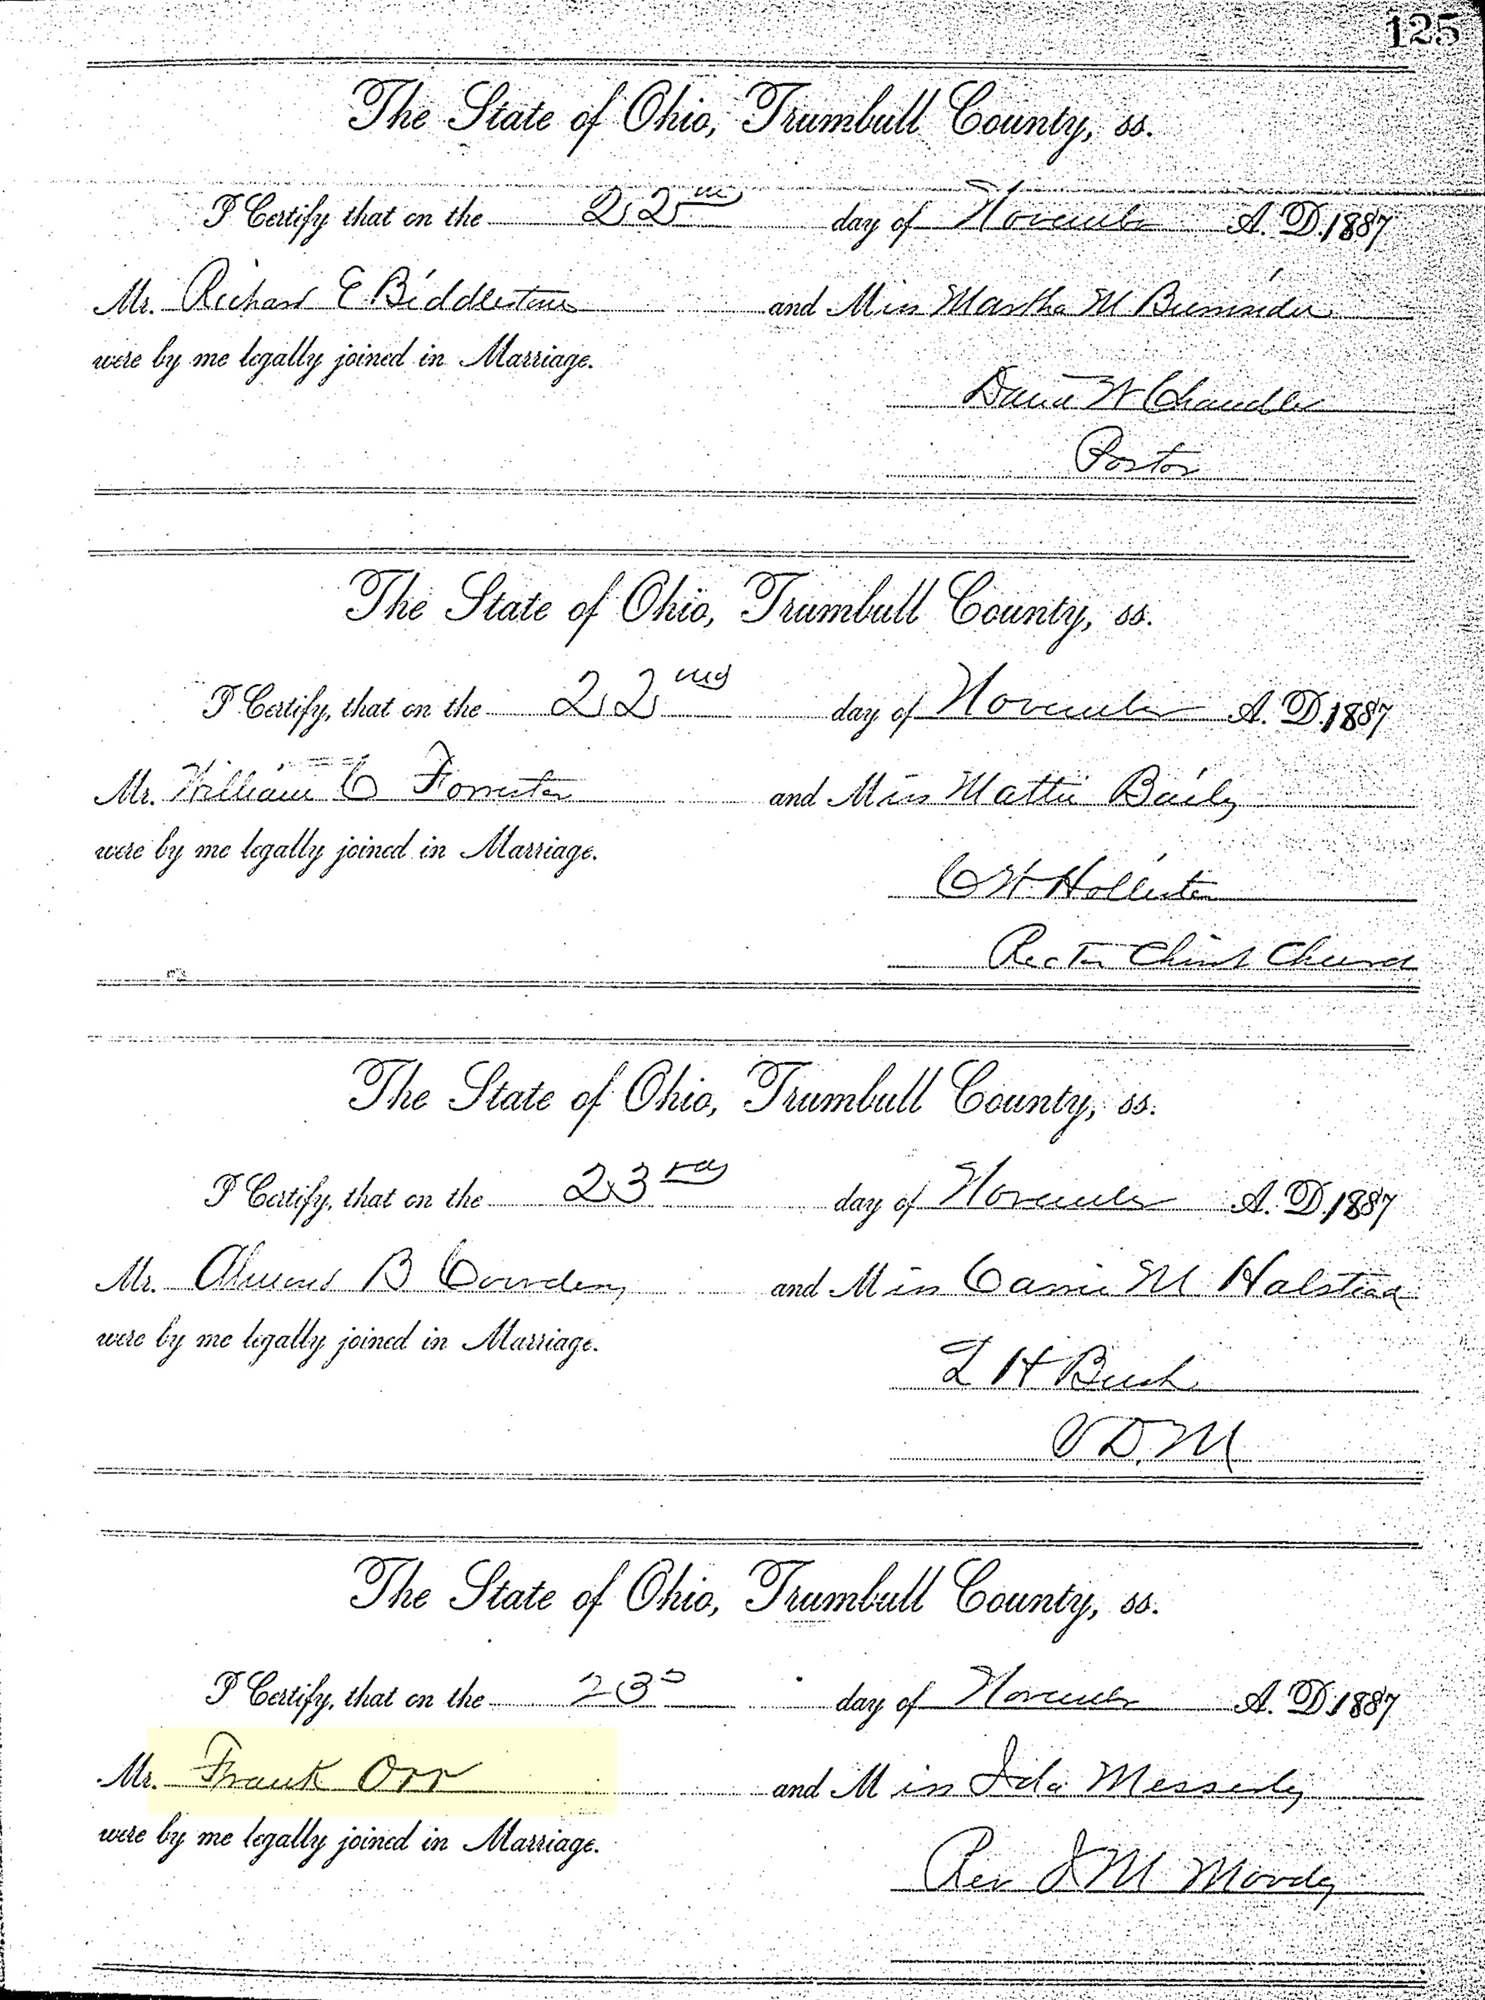 125
The State of Ohio, Trumbull County, ss.
I Certify that on the 22nd day of November A. D. 1887
Mr. Richard E Biddlestone and Miss Martha M
were by me legally joined in Marriage.
David W Chandler
Pastor
The State of Ohio, Trumbull County, ss.
I Certify, that on the 22nd day of November A. D. 1887
Mr. William C Forrester and Miss Mattie Baily
were by me legally joined in Marriage.
C W Hollister
Rector Christ Church
The State of Ohio, Trumbull County, ss.
I Certify, that on the 23rd day of November A. D. 1887
Mr. B Cowden and Miss Carrie M Halstead
were by me legally joined in Marriage.
H Bush
V D. M
The State of Ohio, Trumbull County, ss.
I Certify, that on the 23 day of November A. D. 1887
Mr. Frank Orr and Miss Ida Messerly
were by me legally joined in Marriage.
Rev J M Moody